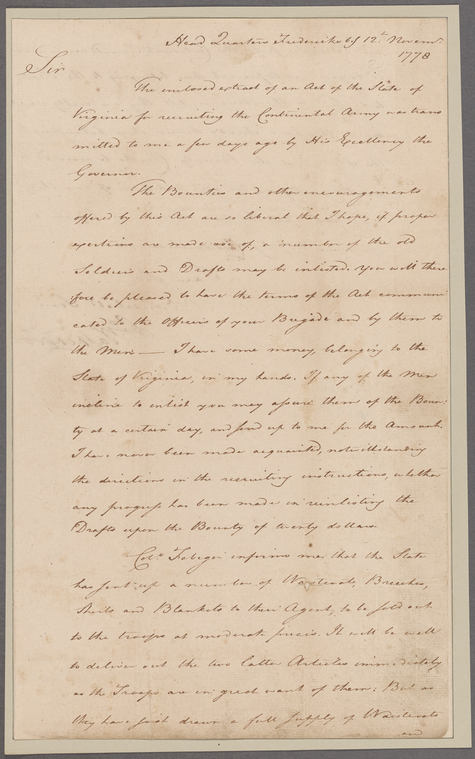 Head Quarters Fredericksbg 12th. Novemr.
1778
Sir
The enclosed extract of an Act of the State of
Virginia for recruiting the Continental Army was trans
mitted to me a few days ago by His Excellency the
Governor.
The Bounties and other encouragements
offered by this Act are so liberal that I hope, if proper
exertions are made use of, a number of the old
Soldiers and Drafts may be inlisted. You will there
fore be pleased to have the terms of the Act communi
cated to the Officers of your Brigade and by them to
the Men — I have some money, belonging to the
State of Virginia, in my hands. If any of the Men
incline to enlist you may assure them of the Boun
ty at a certain day, and send up to me for the Amount.
I have never been made acquainted, notwithstanding
the directions in the recruiting instructions, whether
any progress has been made in reinlisting the
Drafts upon the Bounty of twenty dollars.
Colo. Febiger informs me that the State
has sent up a number of Waistcoats, Breeches,
Shirts and Blankets to their Agent, to be sold out
to the troops at moderate prices. It will be well
to deliver out the two latter Articles immediately
as the Troops are in great want of them: But as
they have just drawn a full supply of Waistcoats
and